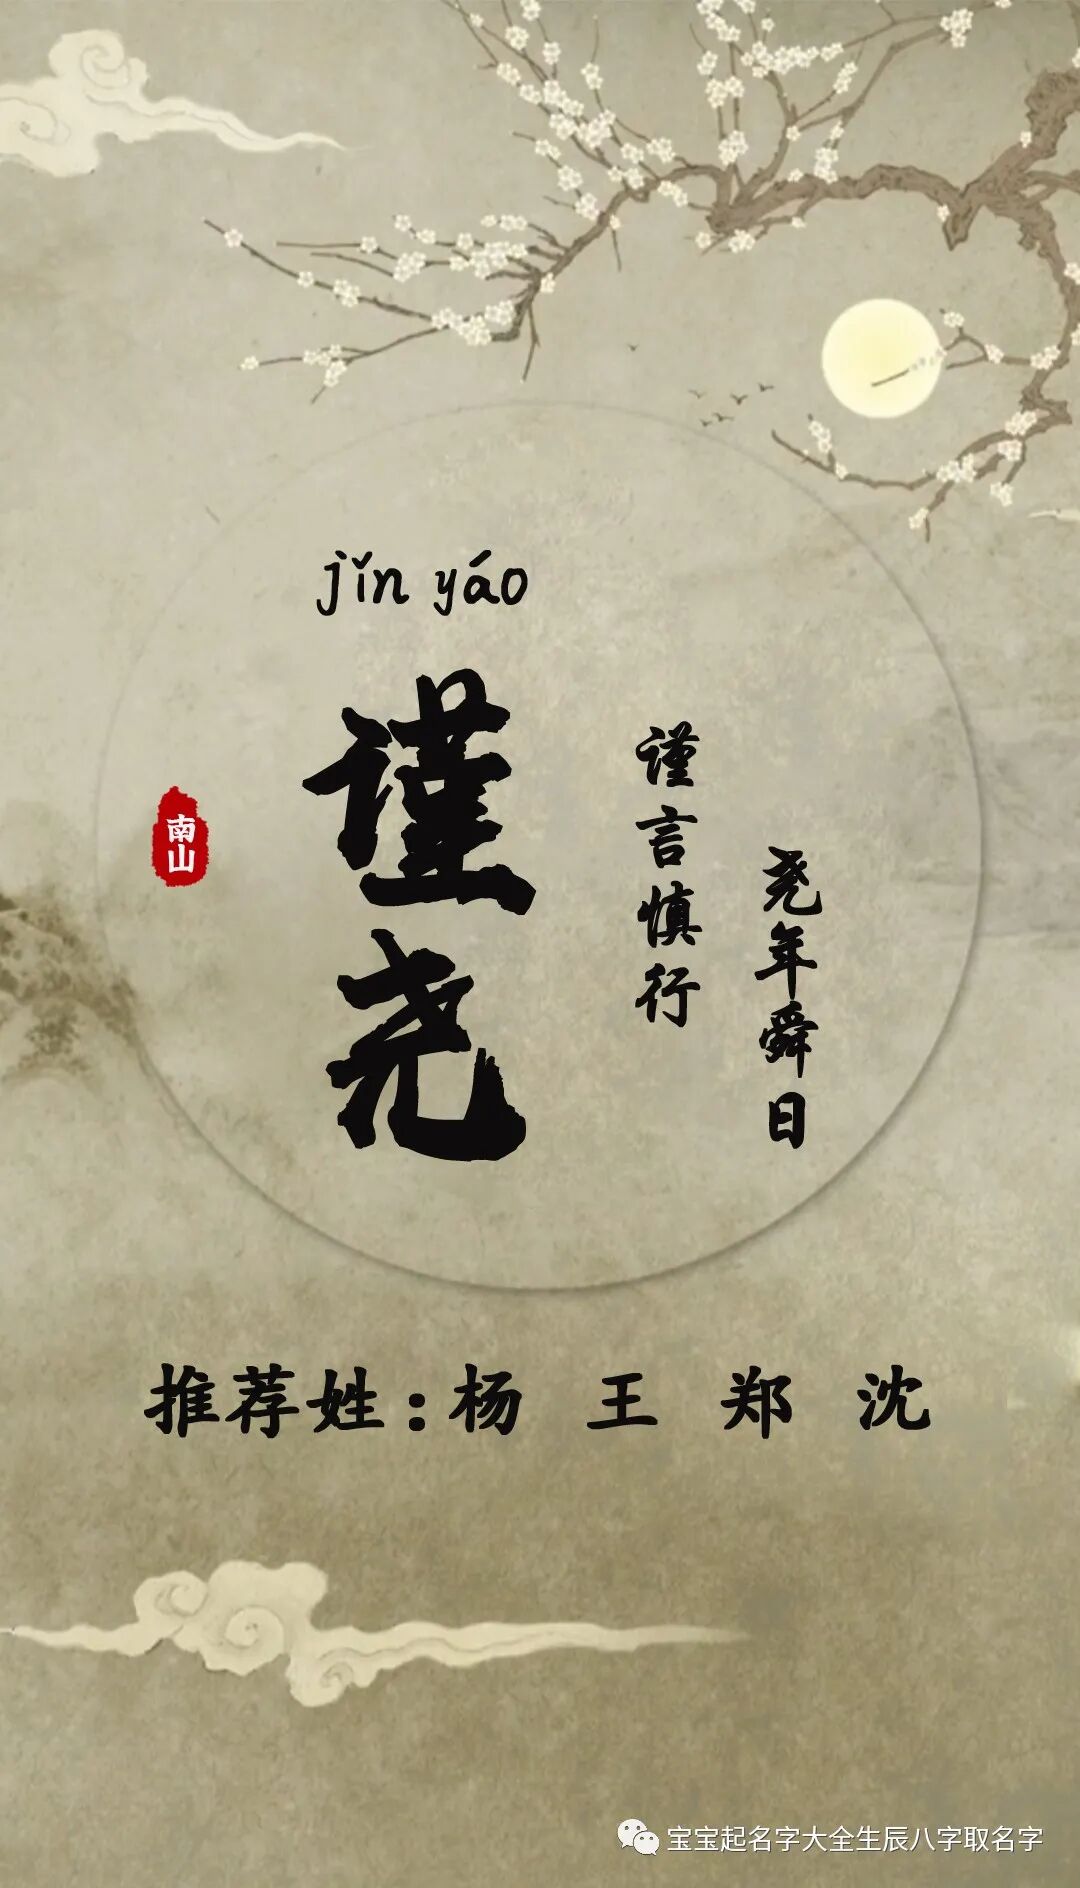 jǐn yáo
谨尧
谨言慎行
尧年舜日
南山
推荐姓：杨 王 郑 沈
宝宝起名字大全生辰八字取名字